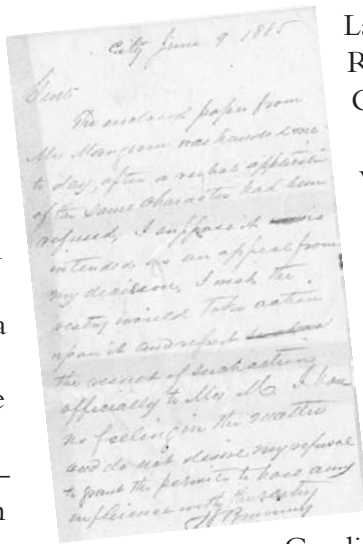 City June 9 1885
Gents
The enclosed paper from
Mrs Mangum was handed me
to day, after a verbal application
of the same character had been
refused, I suppose it is
intended as an appeal from
my decision, I wish the
vestry would take action
upon it and report
the result of such action
officially to Mrs M. I have
no feeling in the matter
and do not desire my refusal
to grant the permit to have any
influence with the vestry
La
R
C
a
e
n